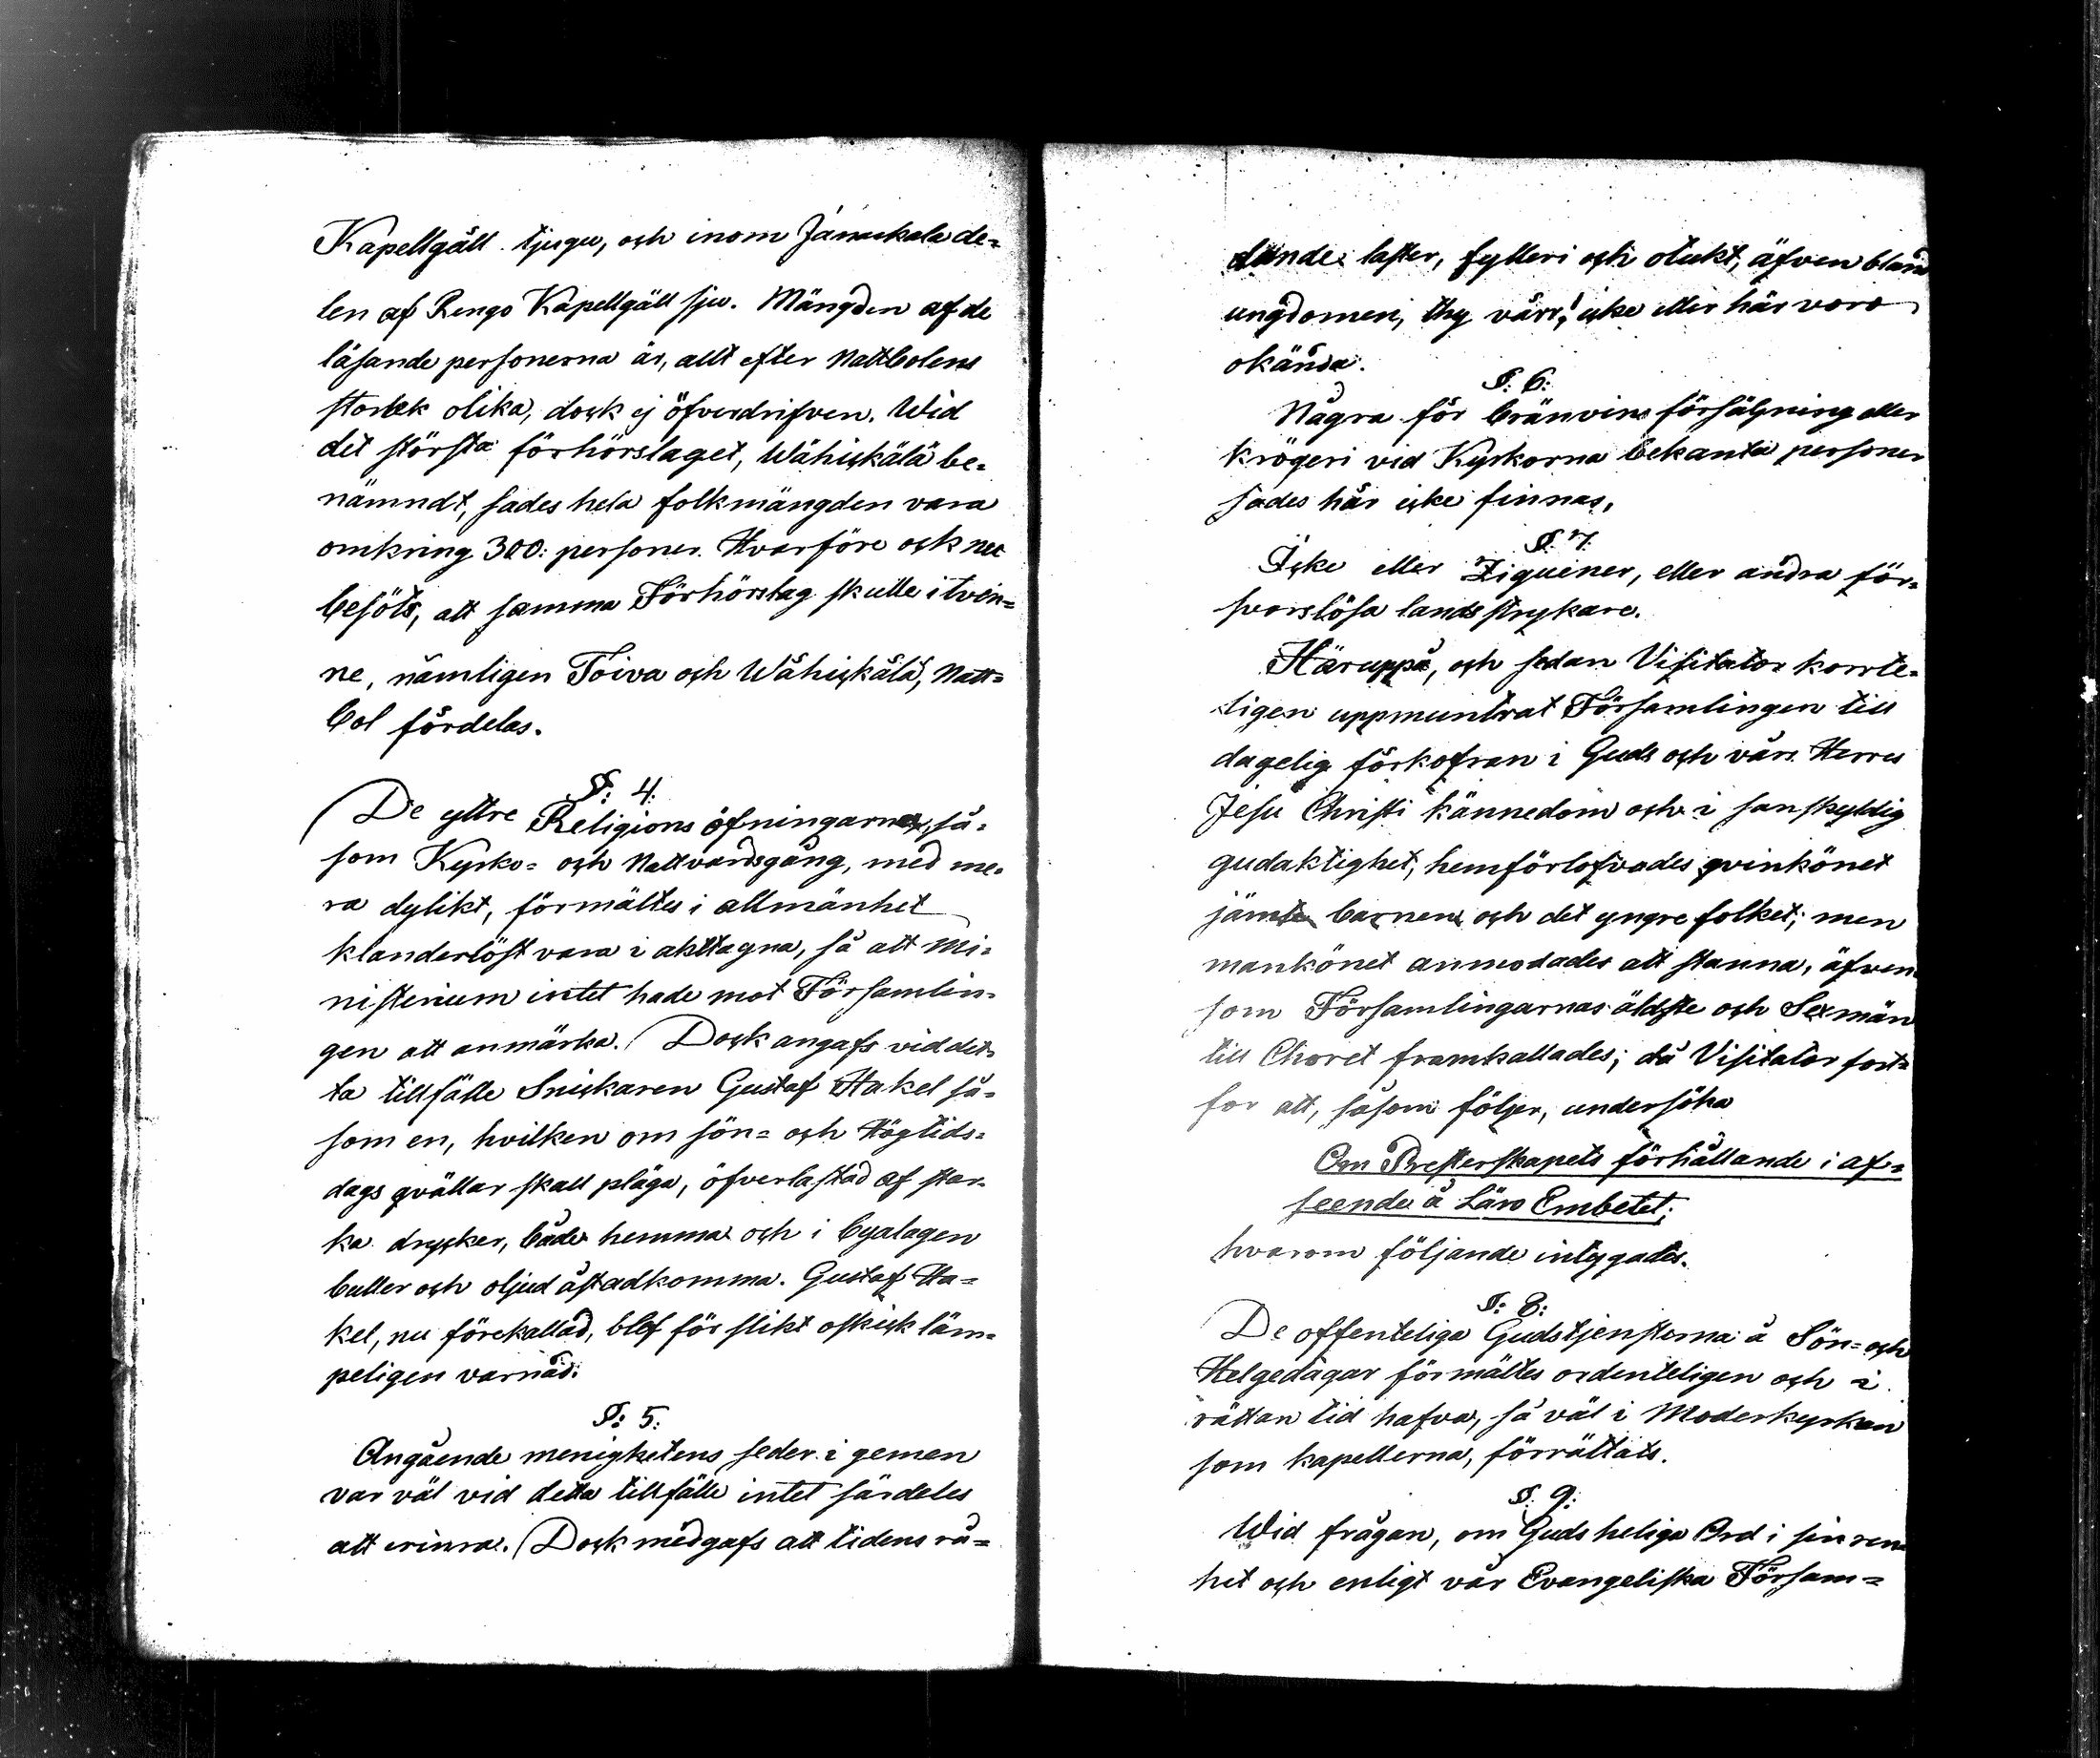 Kapellgäll tjugu, och inom Janackala de=
len af Rengo Kapellgäll sju. Mängden af de
läsande personerna är, allt efter Nattbolens
storlek olika, dock ej öfverdrifven. Wid
det största förhörslaget, Wähickälä be=
nämndt, sades hela folkmängden vara
omkring 300: personer. Hvarföre ock nu
besöts, att samma Förhörslag skulle i tvän=
ne, nämligen Toiva och Wähickälä, Natt=
bol fördelas.
§: 4:
De yttre Religions öfningarna, så=
som Kyrko= och Nattvardsgång, med me=
ra dylikt, förmältes i allmänhet
klanderlöst vara i akttagna, så att Mi=
nisterium intet hade mot Församlin=
gen att anmärka. Dock angafs vid det=
ta tillfälle Snickaren Gustaf Hakel så=
som en, hvilken om sön= och Högtids=
dags qvällar skall pläga, öfverlastad af star=
ka drycker, både hemma och i byalagen
buller och oljud åstadkomma. Gustaf Ha=
kel, nu förekallad, blef för slikt oskick läm=
peligen varnad:
§: 5:
Angående menighetens seder i gemen
var väl vid detta tillfälle intet särdeles
att erinra. Dock medgafs att tidens rå=
dande laster, fylleri och otukt, äfven bland
ungdomen, thy värr! icke eller här voro
okända.
§: 6:
Några för bränvins försäljning eller
krögeri vid Kyrkorna bekanta personer
sades här icke finnas,
§: 7:
Icke eller Ziguener, eller andra för=
svarslösa landsstrykare.
Häruppå, och sedan Visitator korrte=
ligen uppmuntrat Församlingen till
dagelig förkofran i Guds och vårs Herres
Jesu Christi kännedom och i sanskyldig
gudaktighet, hemförlofvades qvinkönet
jämte barnen och det yngre folket; men
mankönet anmodades att stanna, äfven
som Församlingarnas äldste och Sexmän
till Choret framkallades; då Visitator fort=
for att, såsom följer, undersöka
Om Presterskapets förhållande i af=
seende å Läro Embetet;
hvarom följande intygades.
§: 8:
De offenteliga Gudstjensterna å Sön= och
Helgedagar förmältes ordenteligen och i
rättan tid hafva, så väl i Moderkyrkan
som kapellerna, förrättats.
§: 9:
Wid frågan, om Guds heliga Ord i sin ren=
het och enligt vår Evangeliska Försam=